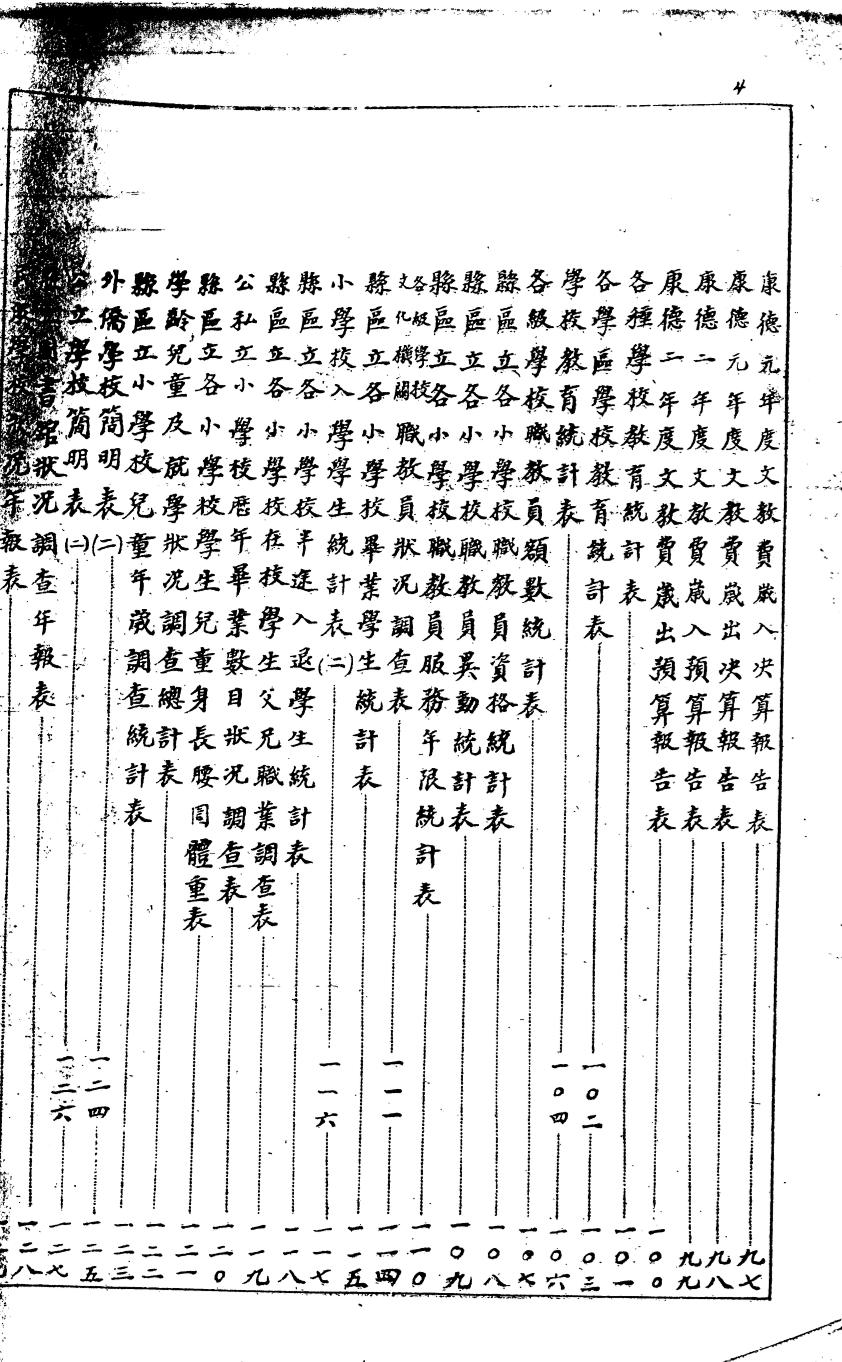 4
康德元年度文教費歲入决算報告表 九七
康德元年度文教費歲出决算報告表 九八
康德二年度文教費歲入預算報告表 九九
康德二年度文教費歲出預算報告表 一〇〇
各種學校教育統計表 一〇一
各學區學校教育統計表 一〇二 一〇三
學校教育統計表 一〇四 一〇六
各級學校職教員額數統計表 一〇七
縣區立各小學校職教員資格統計表 一〇八
縣區立各小學校職教員異動統計表 一〇九
縣區立各小學校職教員服務年限統計表 一一〇
各級學校文化機關職教員狀况調查表 一一一 一一四
縣區立各小學校畢業學生統計表 一一五
小學校入學學生統計表(二) 一一六 一一七
縣區立各小學校半途入退學生統計表 一一八
縣區立各小學校在校學生父兄職業調查表 一一九
公私立小學校曆年畢業數目狀况調查表 一二〇
縣區立各小學校學生兒童身長腰囘體重表 一二一
學齡兒童及就學狀况調查總計表 一二二
縣區立小學校兒童年歲調查統計表 一二三
外僑學校簡明表(二) 一二四 一二五
公立學校簡明表(二) 一二六 一二七
書舘狀况調查年報表 一二八
况年報表